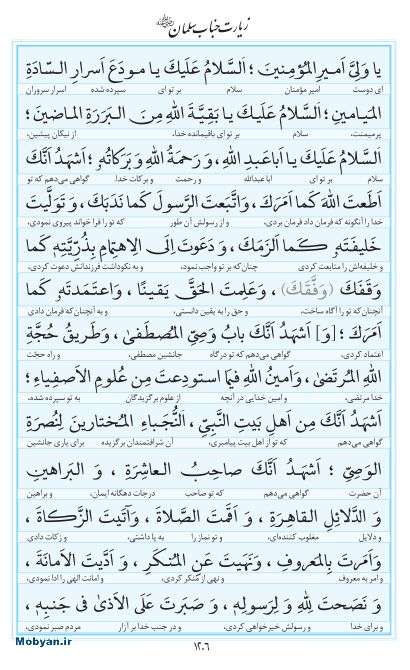 زیارت جناب سلمان
يا وَلِيَّ اَميرِ المُؤمِنينَ ؛ اَلسَّلامُ عَلَيكَ يا مودَعَ اَسرارِ السّادَةِ
ای دوست امیر مؤمنان سلام بر تو ای سپرده شده اسرار سروران
المَيامينِ ؛ اَلسَّلامُ عَلَيكَ يا بَقِيَّةَ اللهِ مِنَ البَرَرَةِ الماضينَ ؛
پرمیمنت، سلام بر تو ای باقیمانده خدا، از نیکان پیشین،
اَلسَّلامُ عَلَيكَ يا اَباعَبدِ اللهِ، وَ رَحمَةُ اللهِ وَ بَرَكاتُهُ ؛ اَشهَدُ اَنَّكَ
سلام بر تو ای ابا عبدالله و رحمت و برکات خدا. گواهی می‌دهم که تو
اَطَعتَ اللهَ كَما اَمَرَكَ ، وَاتَّبَعتَ الرَّسولَ كَما نَدَبَكَ ، وَ تَوَلَّيتَ
خدا را آنگونه که فرمان داد فرمان بردی، و از رسولش آن طور که تو را فرا خواند پیروی نمودی،
خَليفَتَهُ كَما اَلزَمَكَ ، وَ دَعَوتَ اِلَى الاِهتِمامِ بِذُرِّيَّتِهِ كَما
و خلیفه‌اش را متابعت کردی چنان‌که بر تو واجب نمود، و به نکوداشت فرزندانش دعوت کردی،
وَقَفَكَ (وَفَّقَكَ) ، وَعَلِمتَ الحَقَّ يَقينًا ، وَاعتَمَدتَهُ كَما
آنچنان‌که تو را آگاه ساخت، و حق را به یقین دانستی، و به آنچنان‌که فرمان دادی
اَمَرَكَ ؛ [وَ] اَشهَدُ اَنَّكَ بابُ وَصِيِّ المُصطَفى ، وَ طَريقُ حُجَّةِ
اعتماد کردی، گواهی می‌دهم که تو درگاه جانشین مصطفی، و راه حجّت
اللهِ المُرتَضى ، وَ اَمينُ اللهِ فيمَا استودِعتَ مِن عُلومِ الاَصفِياءِ ؛
خدا مرتضی، و امین خدایی در آنچه از علوم برگزیدگان به تو سپرده شده،
اَشهَدُ اَنَّكَ مِن اَهلِ بَيتِ النَّبِيِّ ، اَلنُّجَباءِ المُختارينَ لِنُصرَةِ
گواهی می‌دهم که تو از اهل بیت پیامبری، آن شرافتمندان برگزیده برای یاری جانشین
الوَصِيِّ ؛ اَشهَدُ اَنَّكَ صاحِبُ العاشِرَةِ ، وَ البَراهينِ
آن حضرت گواهی می‌دهم که تو صاحب درجات دهگانه ایمان، و براهین
وَ الدَّلائِلِ القاهِرَةِ ، وَ اَقَمتَ الصَّلاةَ ، وَآتَيتَ الزَّكاةَ ،
و دلایل مغلوب کننده‌ای، و تو نماز را به پا داشتی، و زکات دادی
وَاَمَرتَ بِالمَعروفِ ، وَنَهَيتَ عَنِ المُنكَرِ ، وَ اَدَّيتَ الاَمانَةَ ،
و امر به معروف و نهی از منکر کردی، و امانت الهی را ادا نمودی،
وَ نَصَحتَ لِلّٰهِ وَ لِرَسولِهِ، وَ صَبَرتَ عَلَى الاَذى فى جَنبِهِ ،
و برای خدا و رسولش خیرخواهی کردی، و در جنب خدا بر آزار مردم صبر نمودی،
۱۲۰۶
Mobyan.ir